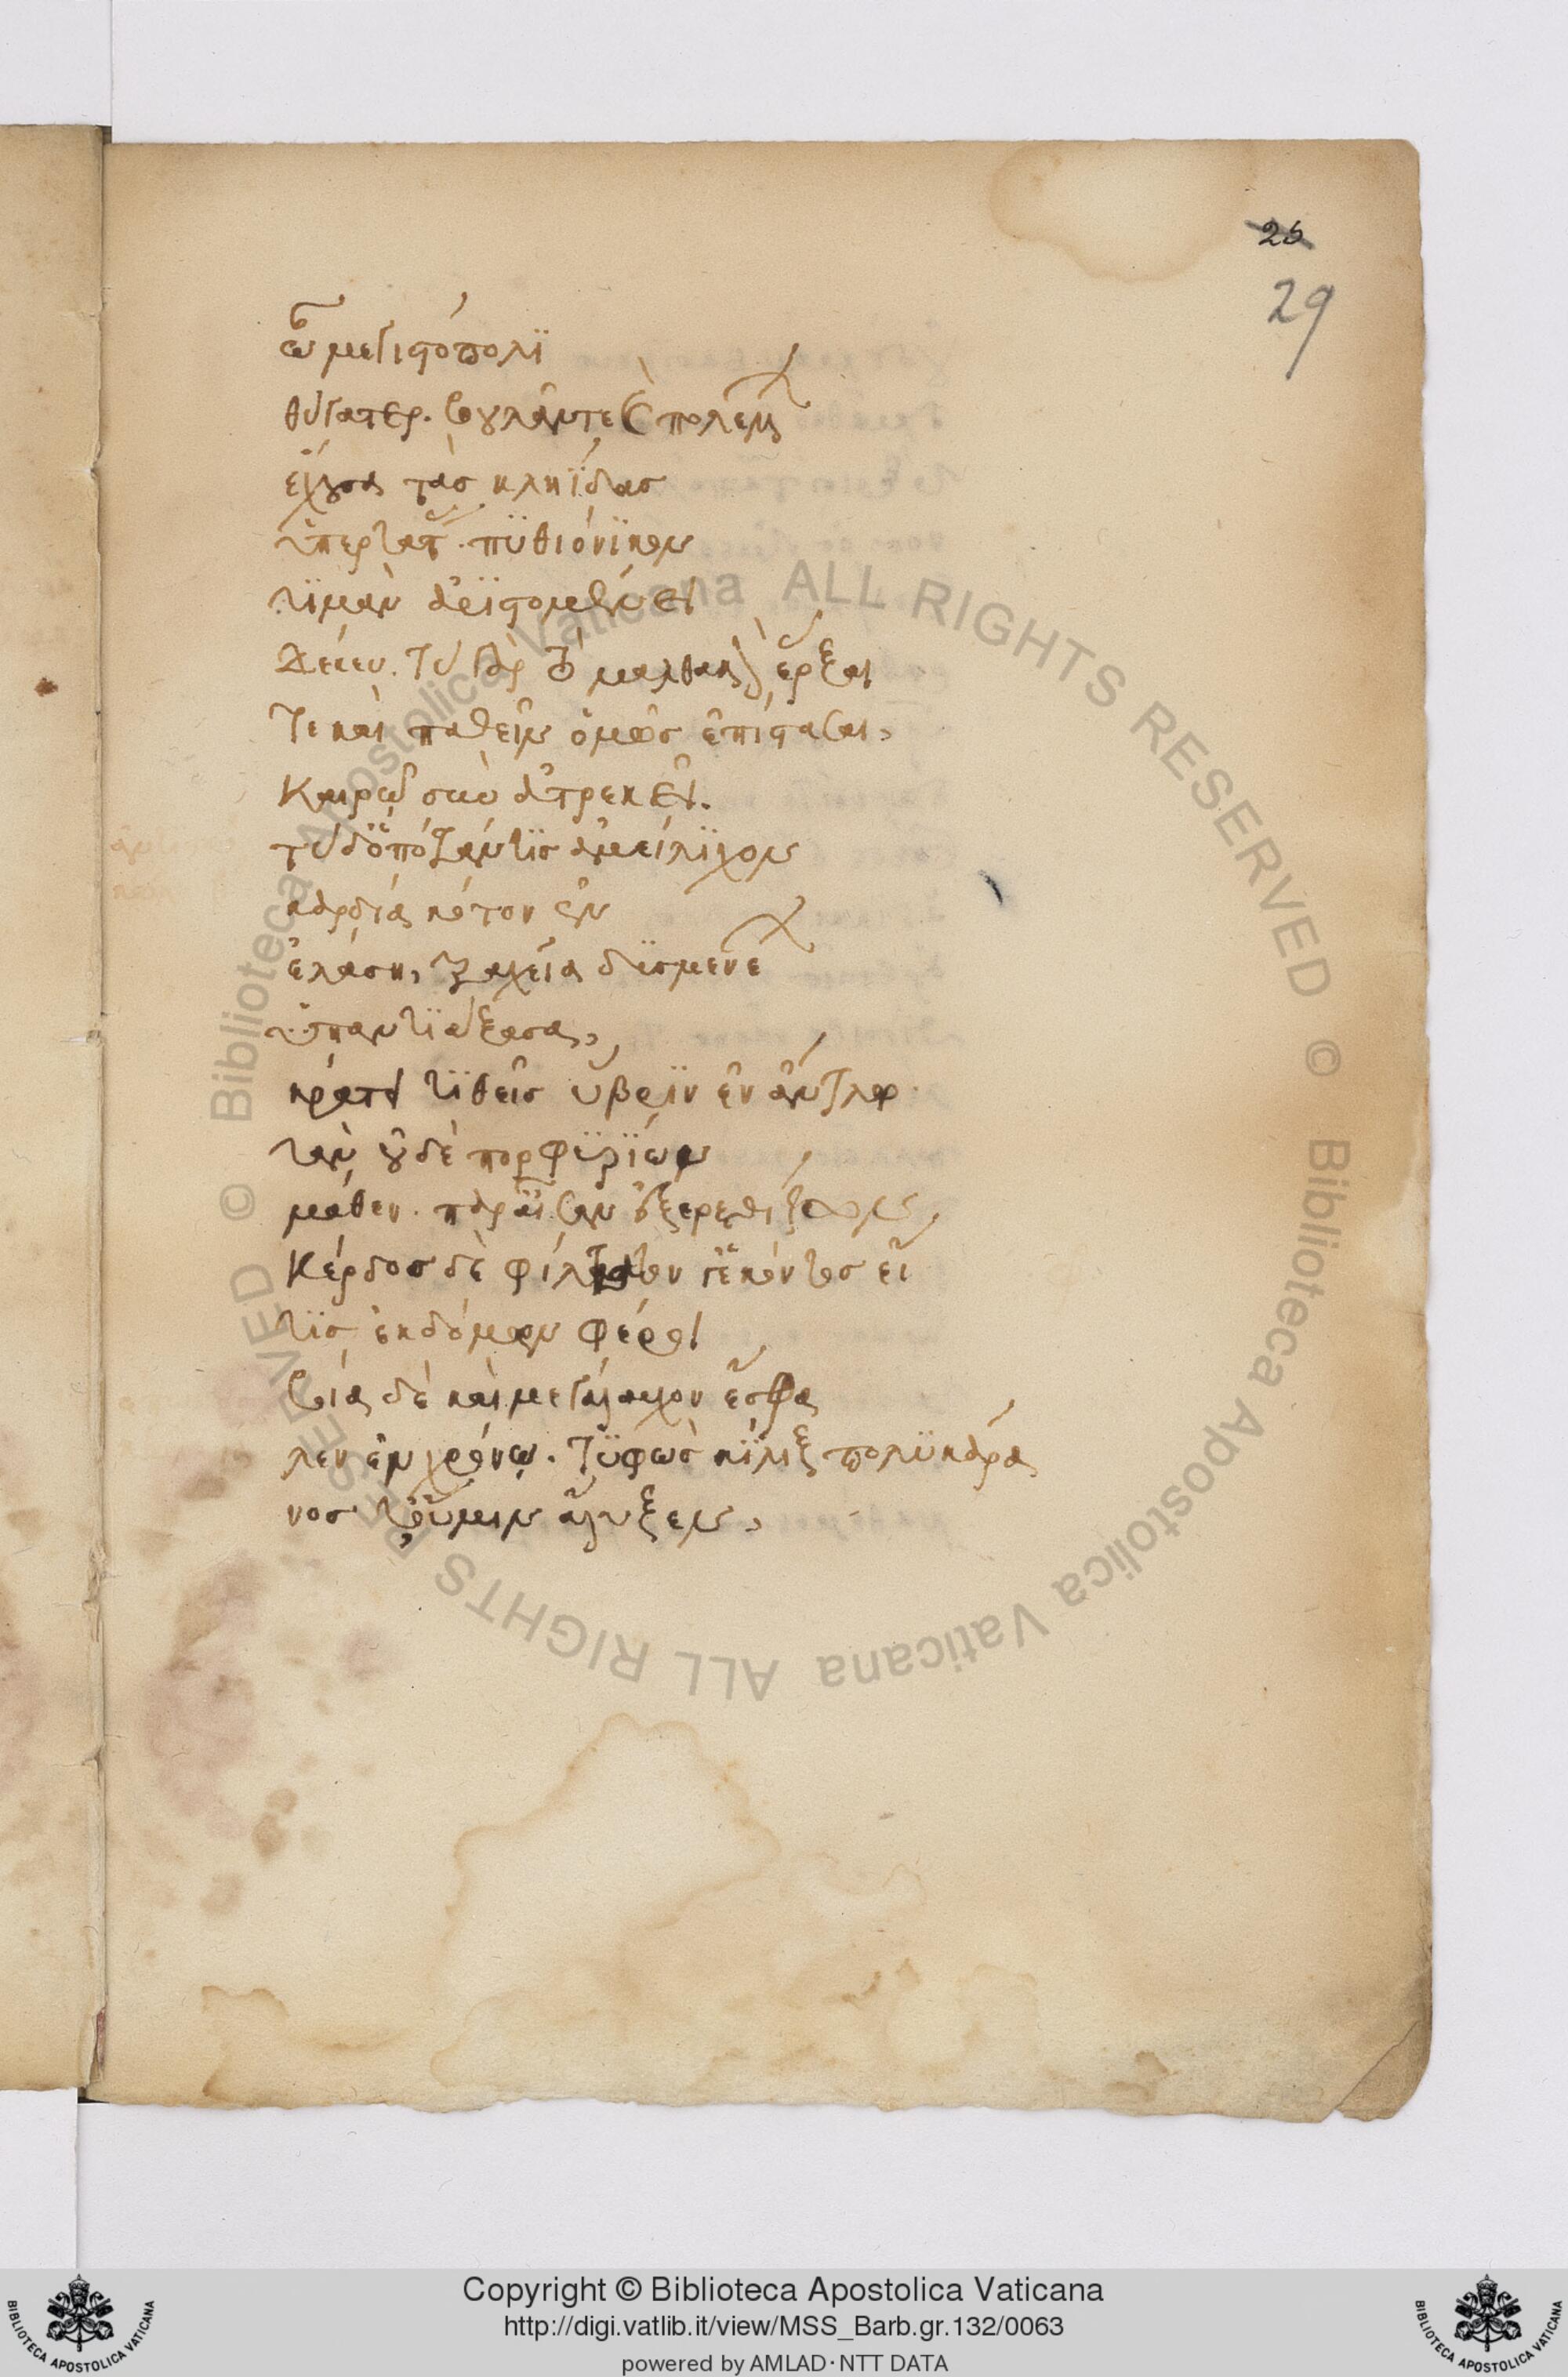 26
29
ὦ μεγιστόπολϊ
θύγατερ. βουλᾶντε καὶ πολέμων
ἔχοισα τὰσ κληΐδασ
ὑπερτάτας. πϋθιόνϊκον
τϊμὰν ἀρϊστομένει
δέκευ. τὺ γὰρ τὸ μαλθακὸν ἔρξαι
τε καὶ παθεῖν ὁμῶσ ἐπίστασαι,
καιρῷ σὺν ἀτρεκεῖ.
τὺ δ' ὁπόταν τϊσ ἀμείλϊχον
καρδίᾳ κότον ἐν
ἐλάσῃ, τραχεῖα δϋσμενέων
ὑπαντϊάξασα,
κράτει τϊθεῖσ ὕβρϊν ἐν ἄντλῳ
τὰν οὐδὲ πορφϋρϊων
μάθεν. παρ' αἶσαν ἐξερεθίζων,
κέρδοσ δὲ φίλτατον ἑκόντοσ εἴ
τϊσ ἐκ δόμων φέροι
βία δὲ καὶ μεγάλαυχον ἔσφα
λεν ἐν χρόνῳ. τϋφὼσ κίλιξ πολϋκάρα
νοσ οὔμιν ἄλυξεν,
Copyright © Biblioteca Apostolica Vaticana
http://digi.vatlib.it/view/MSS_Barb.gr.132/0063
powered by AMLAD·NTT DATA
BIBLIOTECA APOSTOLICA VATICANA
BIBLIOTECA APOSTOLICA VATICANA
© Biblioteca Apostolica Vaticana ALL RIGHTS RESERVED © Biblioteca Apostolica Vaticana ALL RIGHTS RESERVED